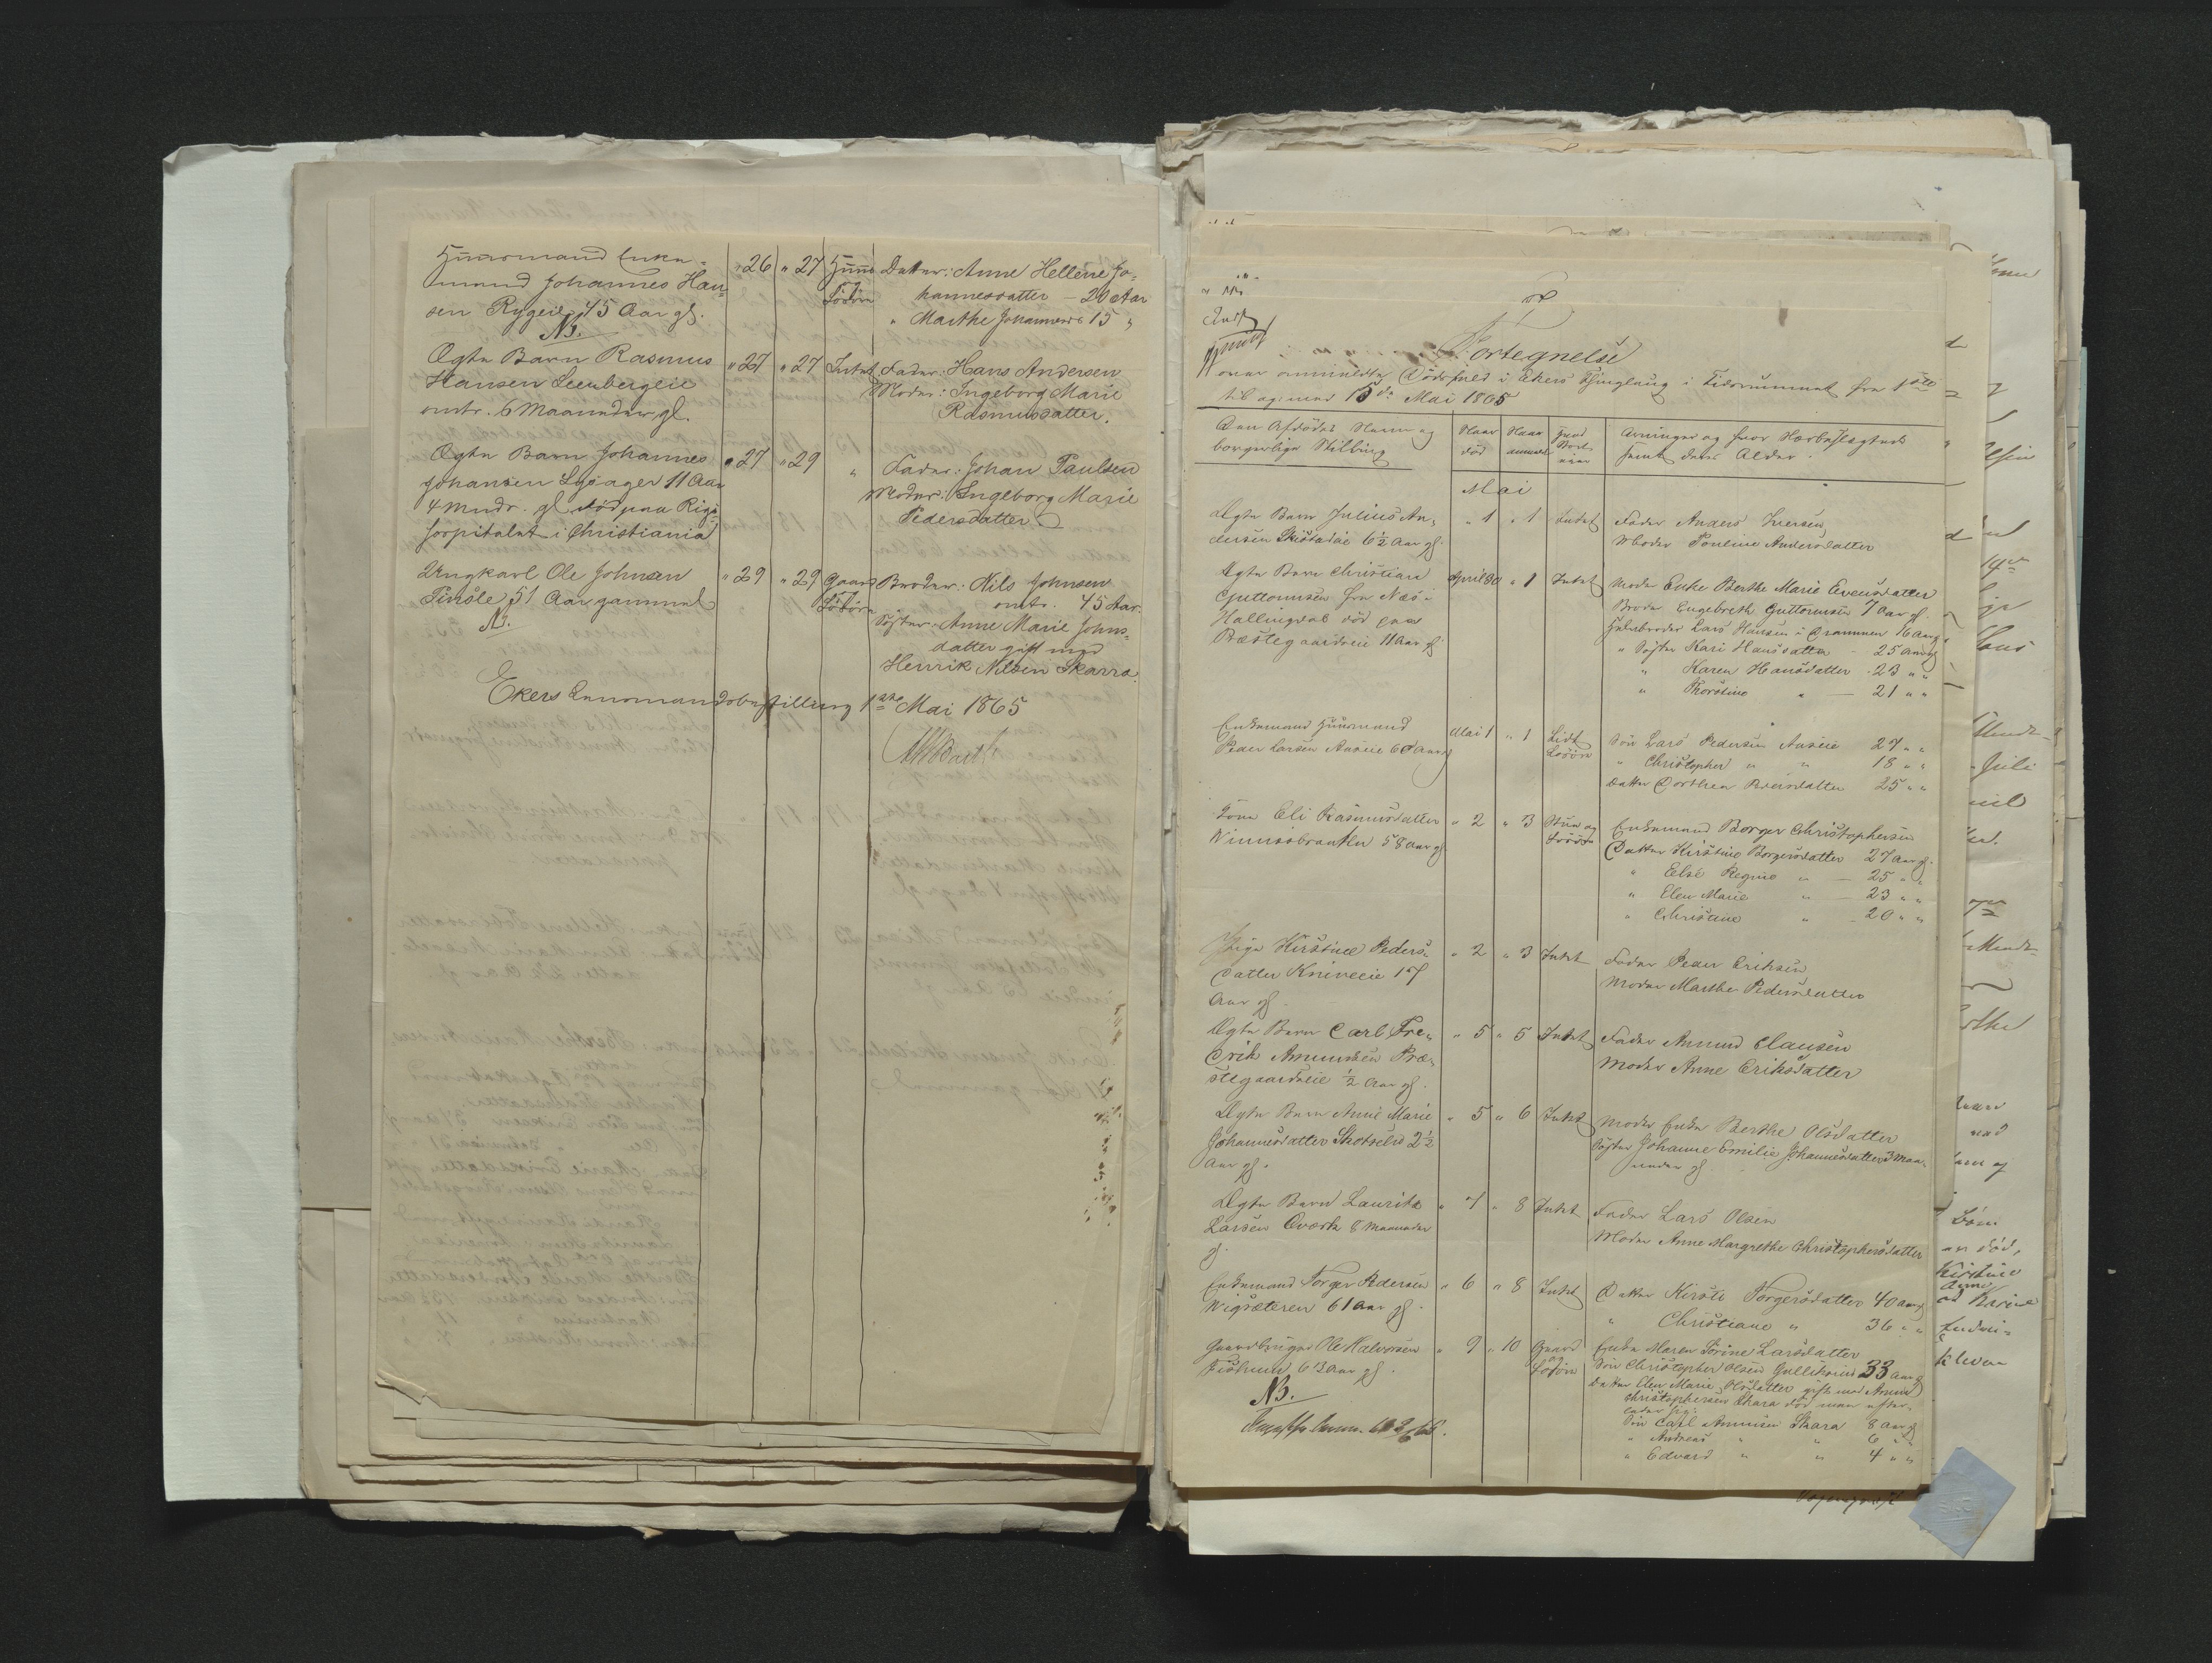 Huusmand Enke-
mand Johannes Han-
sen Rygeie 45 Aar gl.
NB.
" 26 " 27 Huus
Løsøre
Datter: Anne Hellene Jo-
hannesdatter - 20 Aar
" Marthe Johannesd 15 "
Ægte Barn Rasmus
Hansen Leenbergeie
omtr. 6 Maaneder gl.
" 27 " 27 Intet
Fader: Hans Andersen
Moder: Ingeborg Marie
Rasmusdatter.
Ægte Barn Johannes
Johansen Lysager 11 Aar
4 Mndr. gl død paa Rigs-
hospitalet i Christiania
" 27 " 29 "
Fader: Johan Paulsen
Moder: Ingeborg Marie
Pedersdatter
Ungkarl Ole Johnsen
51 Aar gammel
NB.
" 29 " 29 Gaard
Løsøre
Broder: Nils Johnsen
omtr. 45 Aar.
Søster: Anne Marie Johns-
datter gift med
Henrik Nilsen Skarra.
Ekers Lensmandsbestilling 1ste Mai 1865
Fortegnelse
over anmeldte Dødsfald i Ekers Thinglaug i Tidsrummet fra 1ste
til og med 15de Mai 1865
Den Afdødes Navn og
borgerlige Stilling
Naar
død
Naar
anmeldt
Hvad
Boet
eier
Arvinger og hvor Nærbeslægtede
samt deres Alder.
Mai
Ægte Barn Julius An-
dersen 6½ Aar gl.
" 1 " 1 Intet
Fader Anders Iversen
Moder Pouline Andersdatter
Ægte Barn Christian
Guttormsen fra Næs i
Hallingdal død paa
Præstegaardseie 11 Aar gl
April 30 " 1 Intet
Moder Enke Berthe Marie Evensdatter
Broder Engebreth Guttormsen 7 Aar gl.
Halvbroder Lars Hansen i Drammen 16 Aar gl.
" Søster Kari Hansdatter - 25 Aar gl
" Karen Hansdatter 23 " "
" Thorstine " - 21 " "
Enkemand Huusmand
Peder Larsen Aaseie 60 Aar gl
Mai 1 " 1 Lidt
Løsøre
Søn Lars Pedersen Aaseie 27 " "
" Christopher " " 18 " "
Datter Dorthea Pedersdatter 25 " "
Kone Eli Rasmusdatter
Winnisbraathen 58 Aar gl
" 2 " 3 Huus og
Løsøre
Enkemand Borger Christophersen
Datter Kirstine Borgersdatter 27 Aar gl.
" Else Regine " - 25 " "
" Elen Marie " - 23 " "
" Christiane " - 20 " "
Pige Kirstine Peders-
datter Kniveeie 17
Aar gl.
" 2 " 3 Intet
Fader Peder Eriksen
Moder Marthe Pedersdatter
Ægte Barn Carl Fre-
drik Amundsen Præ-
stegaardseie ½ Aar gl.
" 5 " 5 Intet
Fader Amund Clausen
Moder Anne Eriksdatter
Ægte Barn Anne Marie
Johannesdatter Skotselv 2½
Aar gl.
" 5 " 6 Intet
Moder Enke Berthe Olsdatter
Søster Johanne Emilie Johannesdatter 3 Maa-
neder gl
Ægte Barn Lauritz
Larsen 8 Maaneder
gl.
" 7 " 8 Intet
Fader Lars Olsen
Moder Anne Margrethe Christophersdatter
Enkemand Torger Pedersen
Wigsæteren 61 Aar gl.
" 6 " 8 Intet
Datter Kirsti Torgersdatter 40 Aar gl
" Christiane " 36 " "
Gaardbruger Ole Halvorsen
Fiskum 63 Aar gl.
NB.
" 9 " 10 Gaard
og
Løsøre
Enke Maren Sørine Larsdatter
Søn Christopher Olsen Gulliksrud 33 Aar gl
Datter Elen Marie Olsdatter gift med Amund
Christophersen Skara død men efter-
lader sig:
Søn Carl Amundsen Skara 8 Aar gl
" Andreas " " 6 " "
" Edvard " " 4 " "